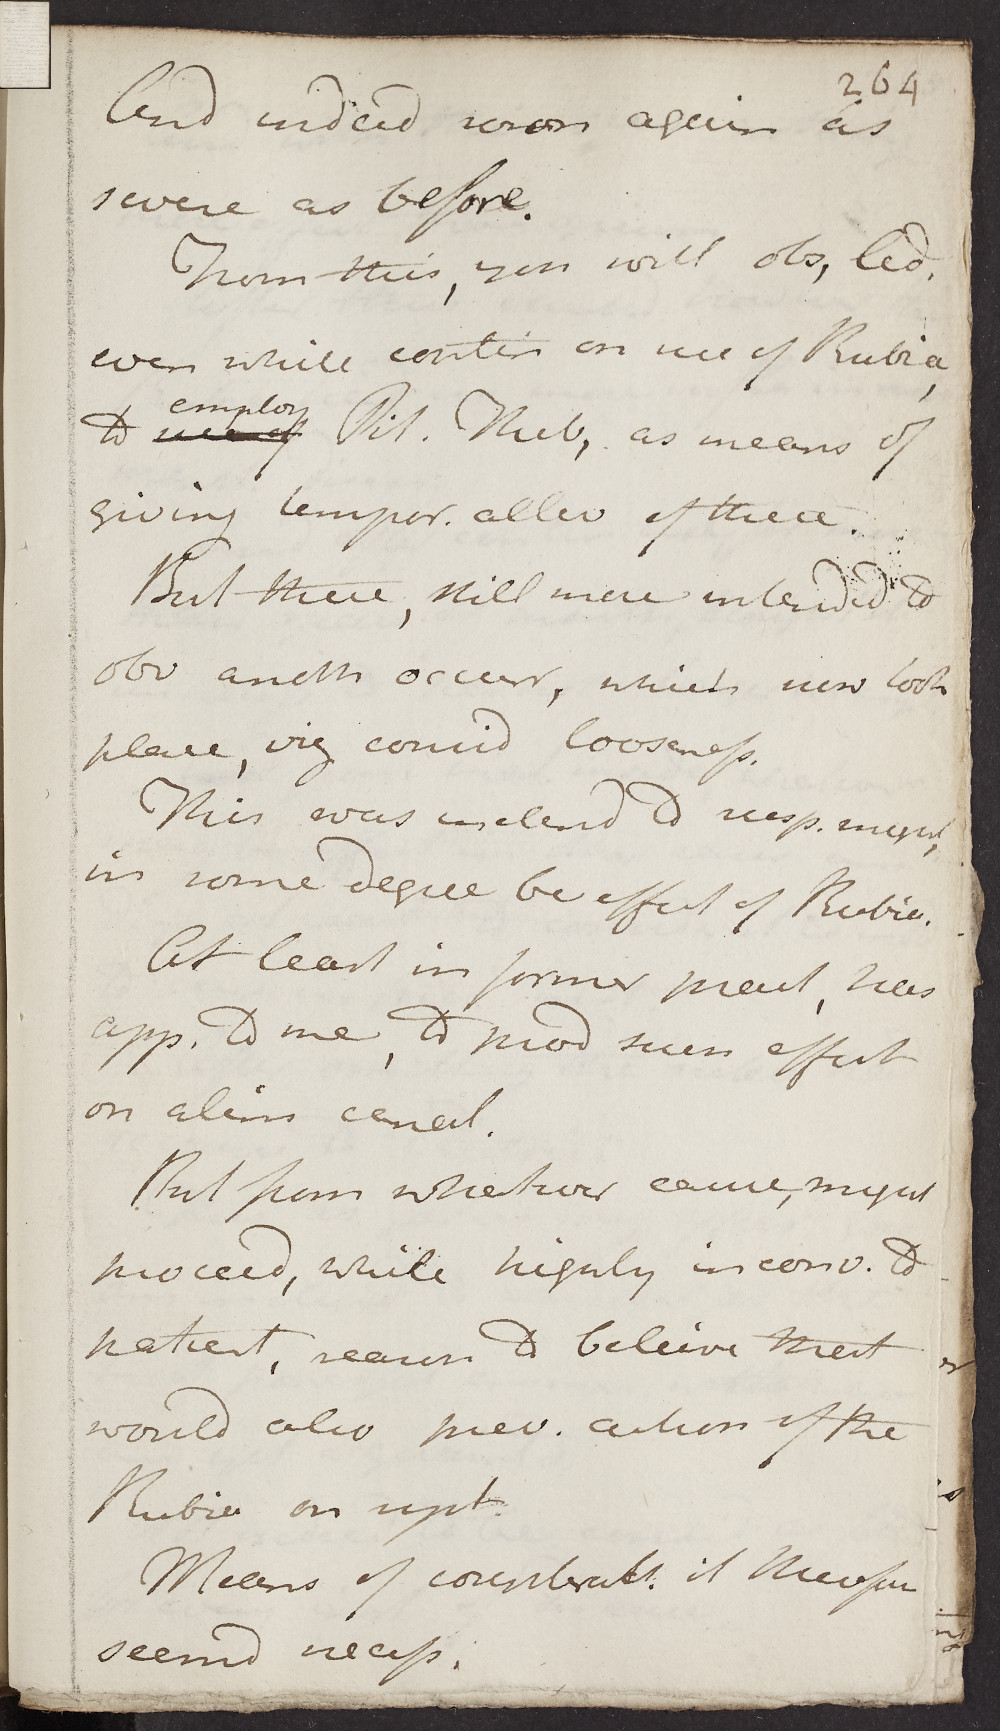 264
And indeed soon again as
severe as before.
From this, you will obs, led,
even while contin on use of Rubia,
to employ use of Pil. Theb, as means of
giving tempor. allev of these.
But these, still more intended to
obv anoth occurr, which now took
place, viz consid looseness.
This was inclend to susp. might,
in some degree be effect of Rubia.
At least in former pract, has
app. to me, to prod such effect
on alim canal.
But from whatever cause, might
proceed, while highly inconv. to
patient, reason to beleive that
would also prev. action of the
Rubia on syst.
Means of counteract. it therefore
seemd necess.